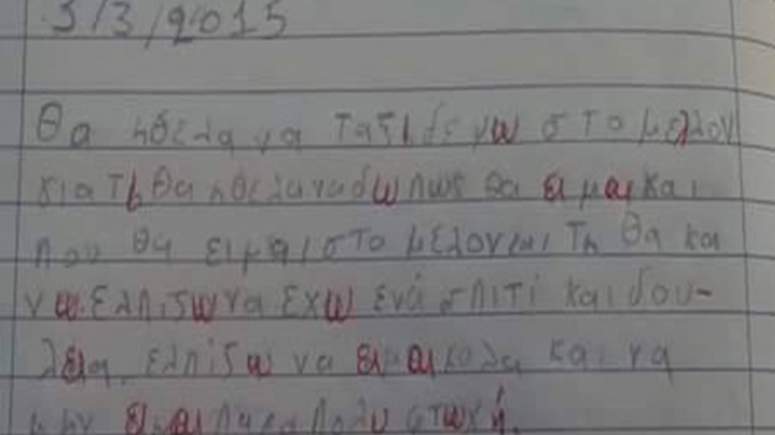 3/3/2015
Θα ηθελα να ταξιδεψω στο μελλον
γιατι θα ηθελα να δω πως θα ειμαι και
που θα ειμαι στο μελον και τη θα κα
νω. Ελπιζω να εχω ενα σπιτι και δου-
λεια, ελπιζω να ειμαι κολα και να
μην ειμαι παρα πολυ φτωχή.